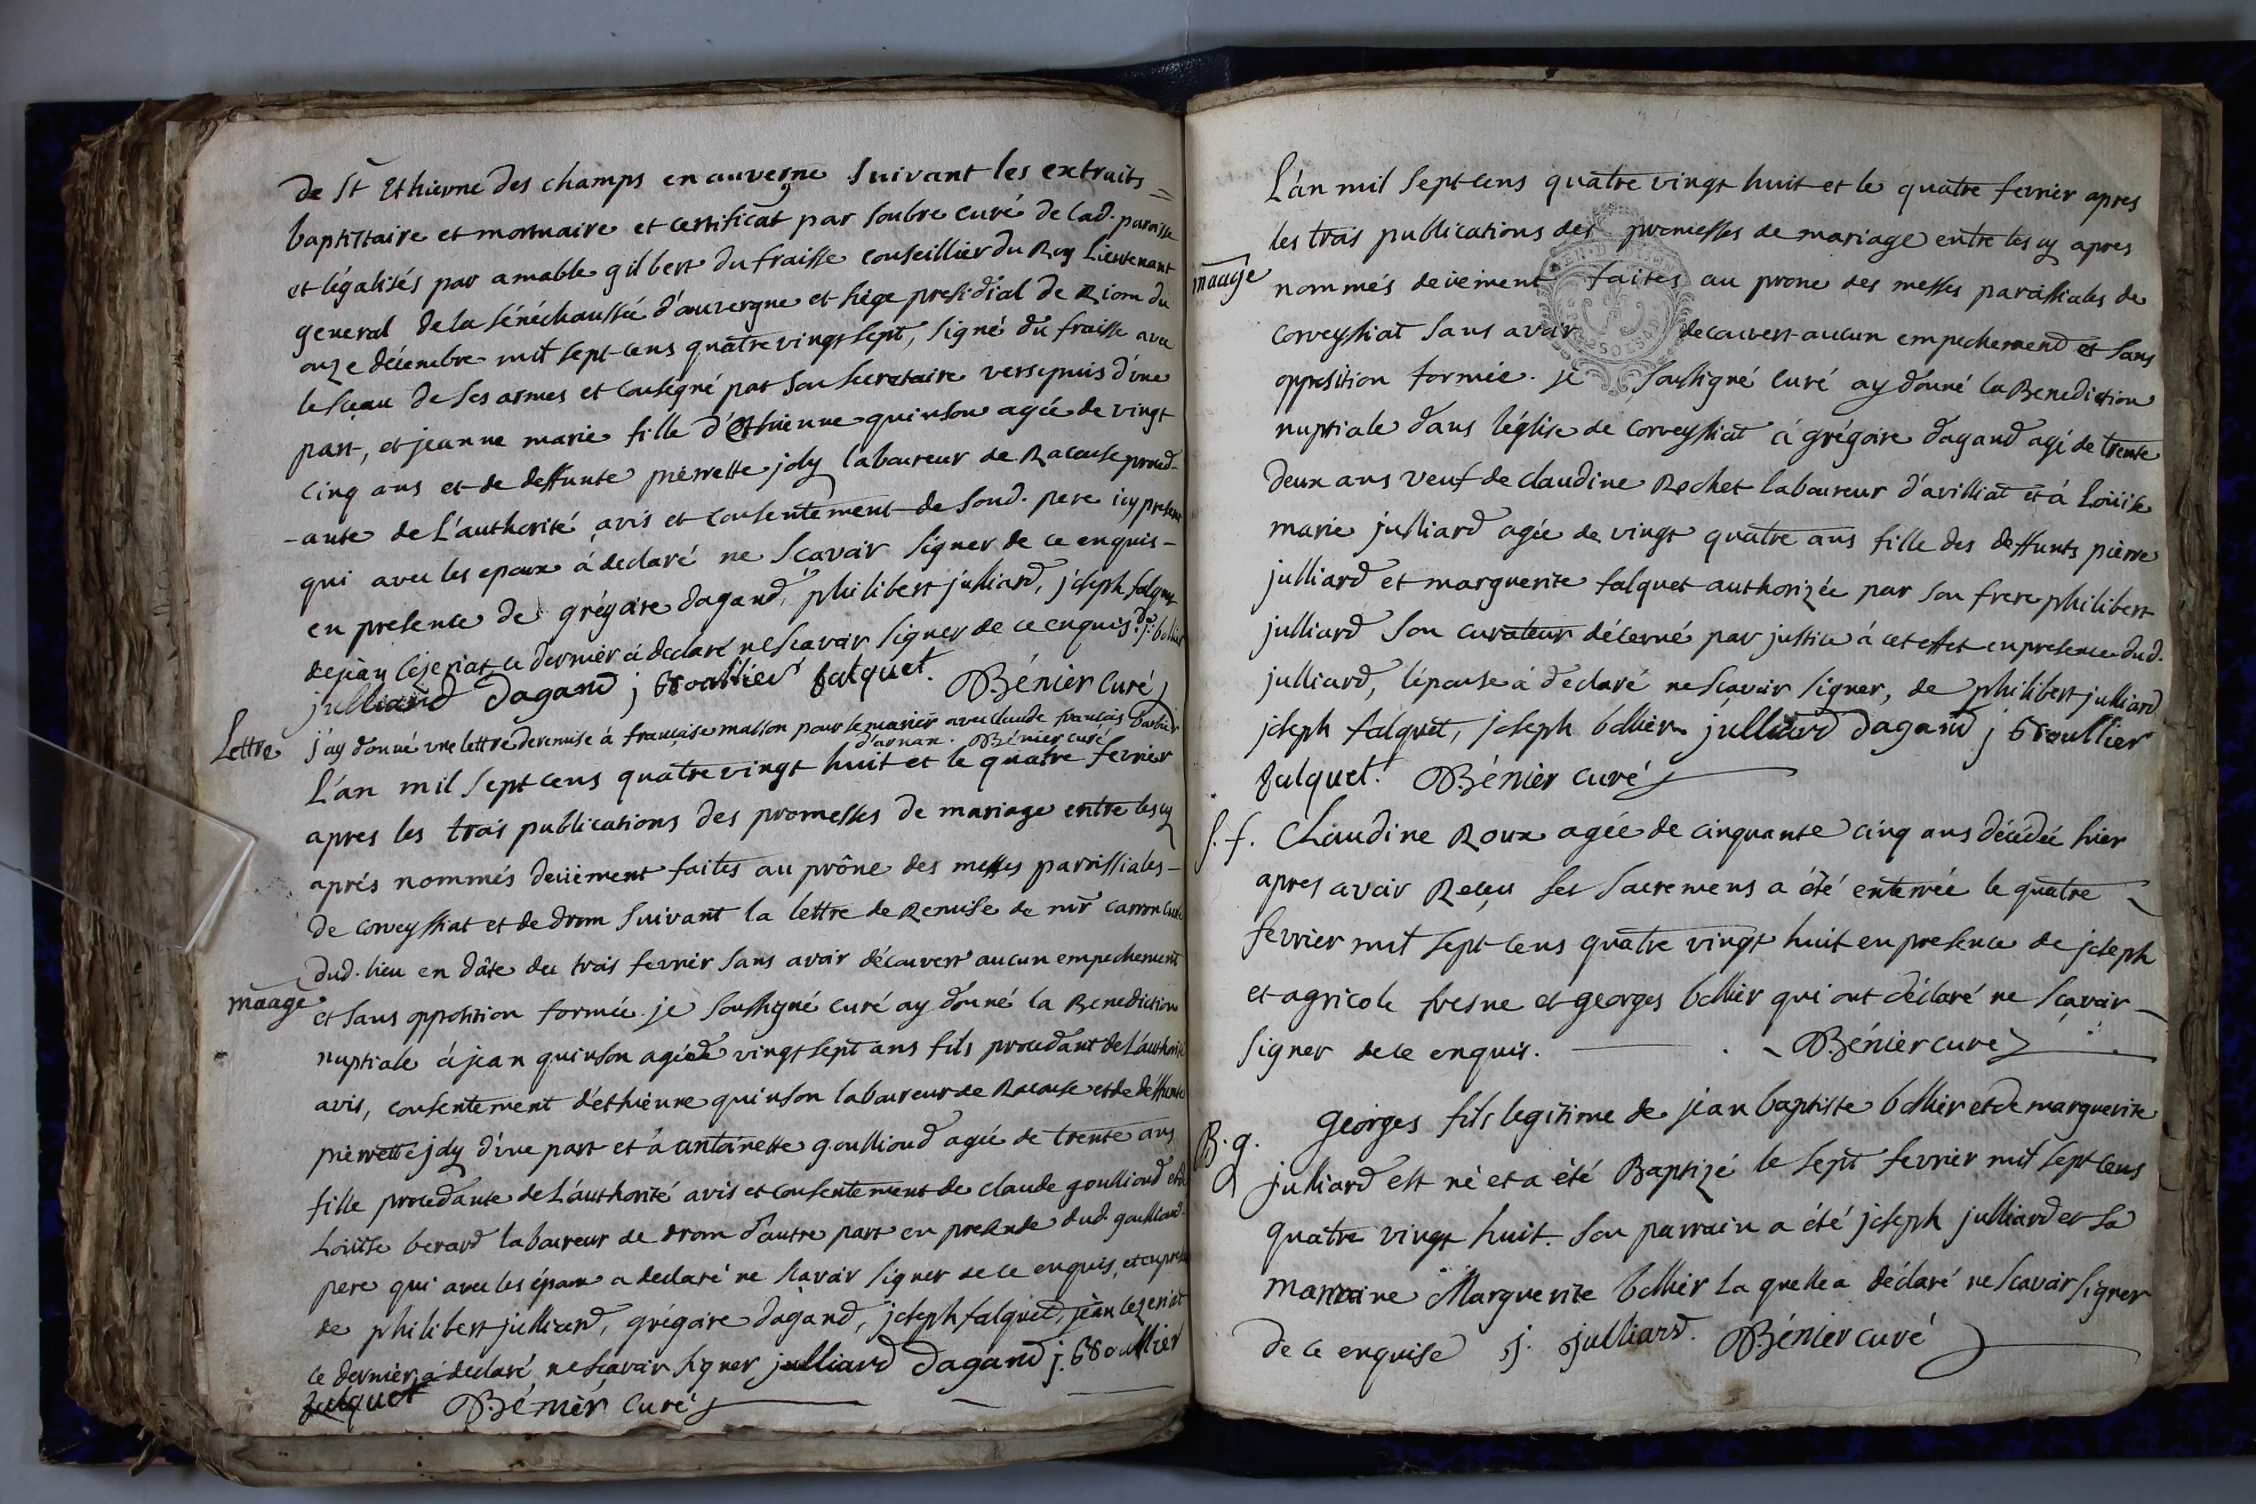 de St Ethienne des champs en auvergne suivant les extraits
baptistaire et mortuaire et certificat par soubre curé de lad. paroisse
et légalisés par amable gilbert du fraisse conseillier du Roy Lieutenant
general de la sénéchaussée d'auvergne et siége presidial de Riom du
onze décembre mil sept cens quatre vingt sept, signé du fraisse avec
le sceau de ses armes et consigné par son secretaire versepuis d'une
part, et jeanne marie fille d'Ethienne quinson agée de vingt
cinq ans et de deffunte pierrette joly laboureur de Racouse proced-
-ante de l'authorité avis et consentement de sond. pere icy present
qui avec les epoux a declaré ne scavoir signer de ce enquis-
en presence de grégoire dagand, philibert julliard, joseph falquet
de jean cezeriat ce dernier a declaré ne scavoir signer de ce enquis. j. bollier
julliard dagand j broullier falquet. Bénier curé
Lettre j'ay donné une lettre de remise à francoise masson pour se marier avec claude françois barbier
d'arnan. Bénier curé
L'an mil sept cens quatre vingt huit et le quatre fevrier
apres les trois publications des promesses de mariage entre les cy
aprés nommés deüement faites au prône des messes paroissiales-
de corveyssiat et de drom suivant la lettre de Remise de mr carron curé
dud. lieu en dâte du trois fevrier sans avoir découvert aucun empechement
maage et sans opposition formée. je soussigné curé ay donné la Benediction
nuptiale à jean quinson agé de vingt sept ans fils procedant de l'authorité
avis, consentement d'ethienne quinson laboureur de Racouse et de deffunte
pierrette joly d'une part et à antoinette goullioud agée de trente ans
fille procedante de l'authorité avis et consentement de claude goullioud et de
Loüise berard laboureur de drom d'autre part en presence dud. goullioud
pere qui avec les époux a declaré ne scavoir signer de ce enquis, et en presence
de philibert julliard, grégoire dagand, joseph falquet, jean cezeriat
ce dernier a declaré ne scavoir signer julliard dagand j. broullier
falquet Bénier curé
L'an mil sept cens quatre vingt huit et le quatre fevrier apres
les trois publications des promesses de mariage entre les cy apres
maage nommés deüement faites au prone des messes paroissiales de
corveyssiat sans avoir decouvert aucun empechement et sans
opposition formée. je soussigné curé ay donné la Benediction
nuptiale dans l'église de corveyssiat à grégoire dagand agé de trente
deux ans veuf de claudine Rochet laboureur d'avilliat et à Loüise
marie julliard agée de vingt quatre ans fille des deffunts pierre
julliard et marguerite falquet authorizée par son frere philibert
julliard son curateur décerné par justice à cet effet en presence dud.
julliard, l'épouse a declaré ne scavoir signer, de philibert julliard
joseph falquet, joseph bollier julliard dagand j broullier
falquet. Bénier curé
S. f. Claudine Roux agée de cinquante cinq ans décédée hier
apres avoir Reçu ses sacremens a été enterrée le quatre
fevrier mil sept cens quatre vingt huit en presence de joseph
et agricole fresne et georges bollier qui ont déclaré ne sçavoir
signer de ce enquis. Bénier curé
Georges fils legitime de jean baptiste bollier et de marguerite
B. g. julliard est né et a été Baptizé le sept fevrier mil sept cens
quatre vingt huit. son parrain a été joseph julliard et sa
marraine Marguerite bollier la quelle a déclaré ne scavoir signer
de ce enquise j. julliard. Bénier curé